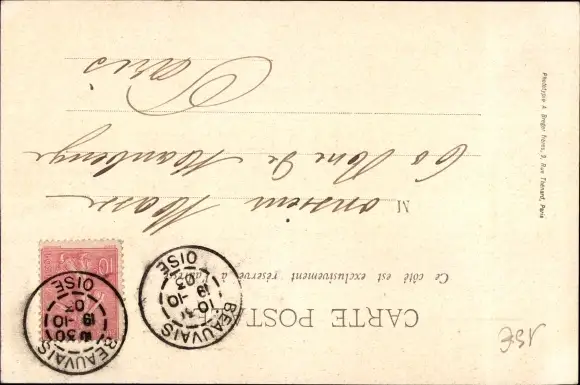 CARTE POSTALE
Ce côté est exclusivement réservé à l'adresse
Monsieur Marx
60 Rue de Maubeuge
Paris
BEAUVAIS
10 30
19 -10
03
OISE
BEAUVAIS
10 30
19 -10
03
OISE
10
Phototypie A. Breger frères, 9, Rue Thénard, Paris